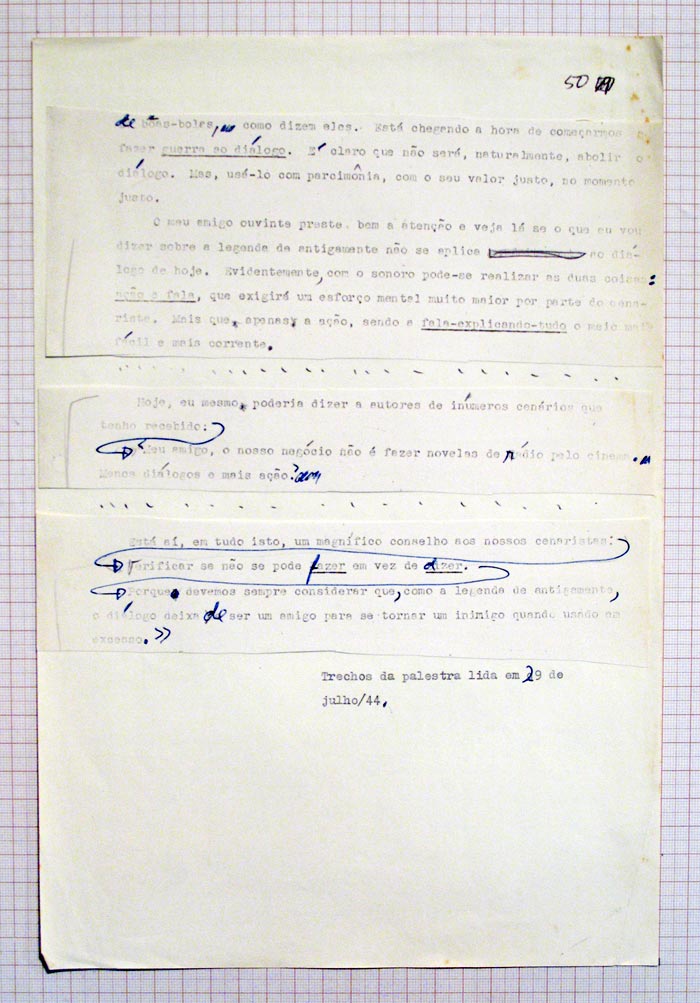 50
de bôas-bolas, como dizem eles. Está chegando a hora de começarmos a
fazer guerra ao diálogo. É claro que não será, naturalmente, abolir o
diálogo. Mas, usá-lo com parcimônia, com o seu valor justo, no momento
justo.
O meu amigo ouvinte preste bem a atenção e veja lá se o que eu vou
dizer sobre a legenda de antigamente não se aplica ao diá-
logo de hoje. Evidentemente, com o sonoro pode-se realizar as duas coisas:
ação e fala, que exigirá um esforço mental muito maior por parte do cena-
rista. Mais que apenas a ação, sendo a fala-explicando-tudo o meio mais
fácil e mais corrente.
Hoje, eu mesmo poderia dizer a autores de inúmeros cenários que
tenho recebido:
"Meu amigo, o nosso negócio não é fazer novelas de rádio pelo cinema.
Menos diálogos e mais ação."
Está aí, em tudo isto, um magnífico conselho aos nossos cenaristas:
Verificar se não se pode fazer em vez de dizer.
Porque devemos sempre considerar que, como a legenda de antigamente,
o diálogo deixa de ser um amigo para se tornar um inimigo quando usado em
excesso.>>
Trechos da palestra lida em 29 de
julho/44.